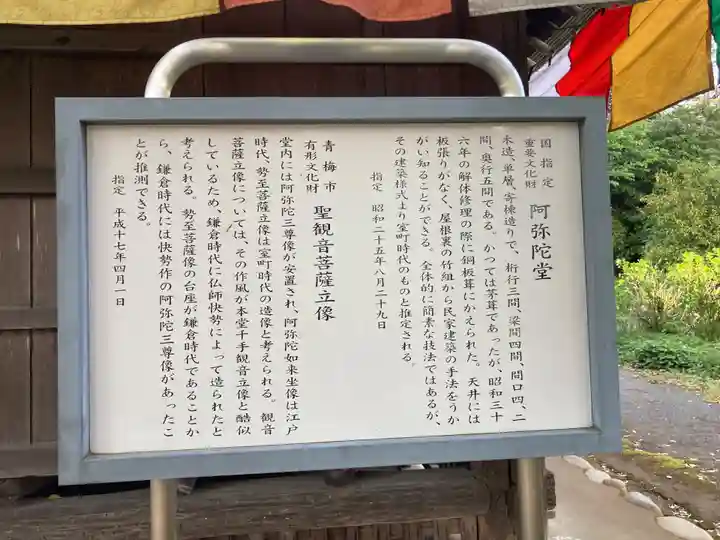 国指定
重要文化財
阿弥陀堂
木造、単層、寄棟造りで、桁行三間、梁間四間、間口四、二
間、奥行五間である。かつては茅葺であったが、昭和三十
六年の解体修理の際に銅板葺にかえられた。天井には
板張りがなく、屋根裏の竹組から民家建築の手法をうか
がい知ることができる。全体的に簡素な技法ではあるが、
その建築様式より室町時代のものと推定される。
指定 昭和二十五年八月二十九日
青梅市
有形文化財
聖観音菩薩立像
堂内には阿弥陀三尊像が安置され、阿弥陀如来坐像は江戸
時代、勢至菩薩立像は室町時代の造像と考えられる。観音
菩薩立像については、その作風が本堂千手観音立像と酷似
しているため、鎌倉時代に仏師快勢によって造られたと
考えられる。勢至菩薩像の台座が鎌倉時代であることか
ら、鎌倉時代には快勢作の阿弥陀三尊像があったこ
とが推測できる。
指定 平成十七年四月一日